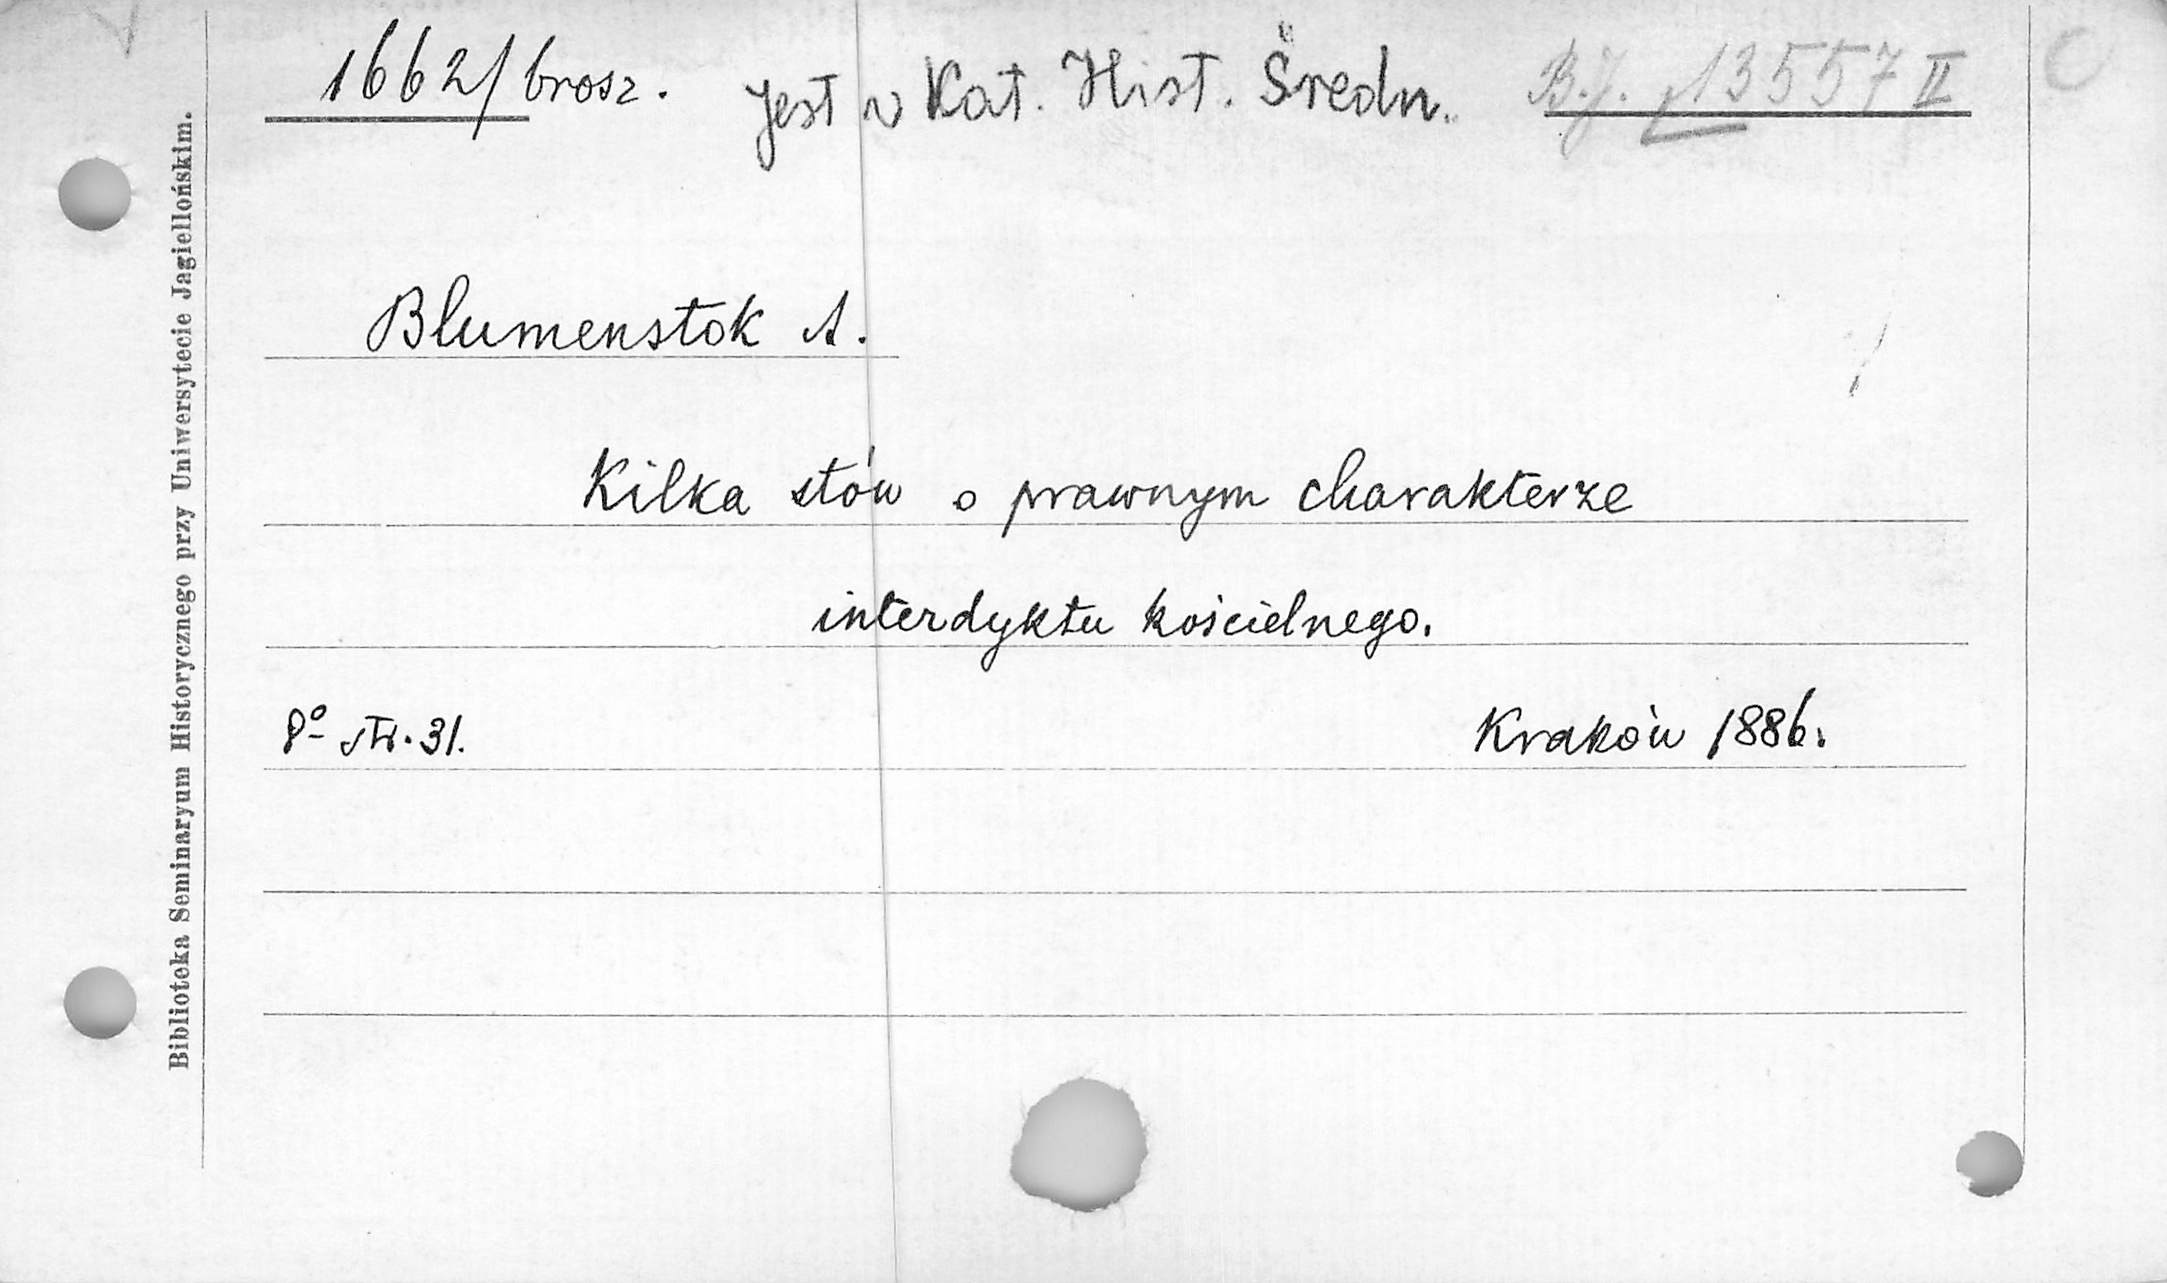 1662/brosz. Jest w Kat. Hist. Średn. B.J. 13557 II
Blumenstok A.
Kilka słów o prawnym charakterze
interdyktu kościelnego.
8º str. 31. Kraków 1886.
Biblioteka Seminaryum Historycznego przy Uniwersytecie Jagiellońskim.